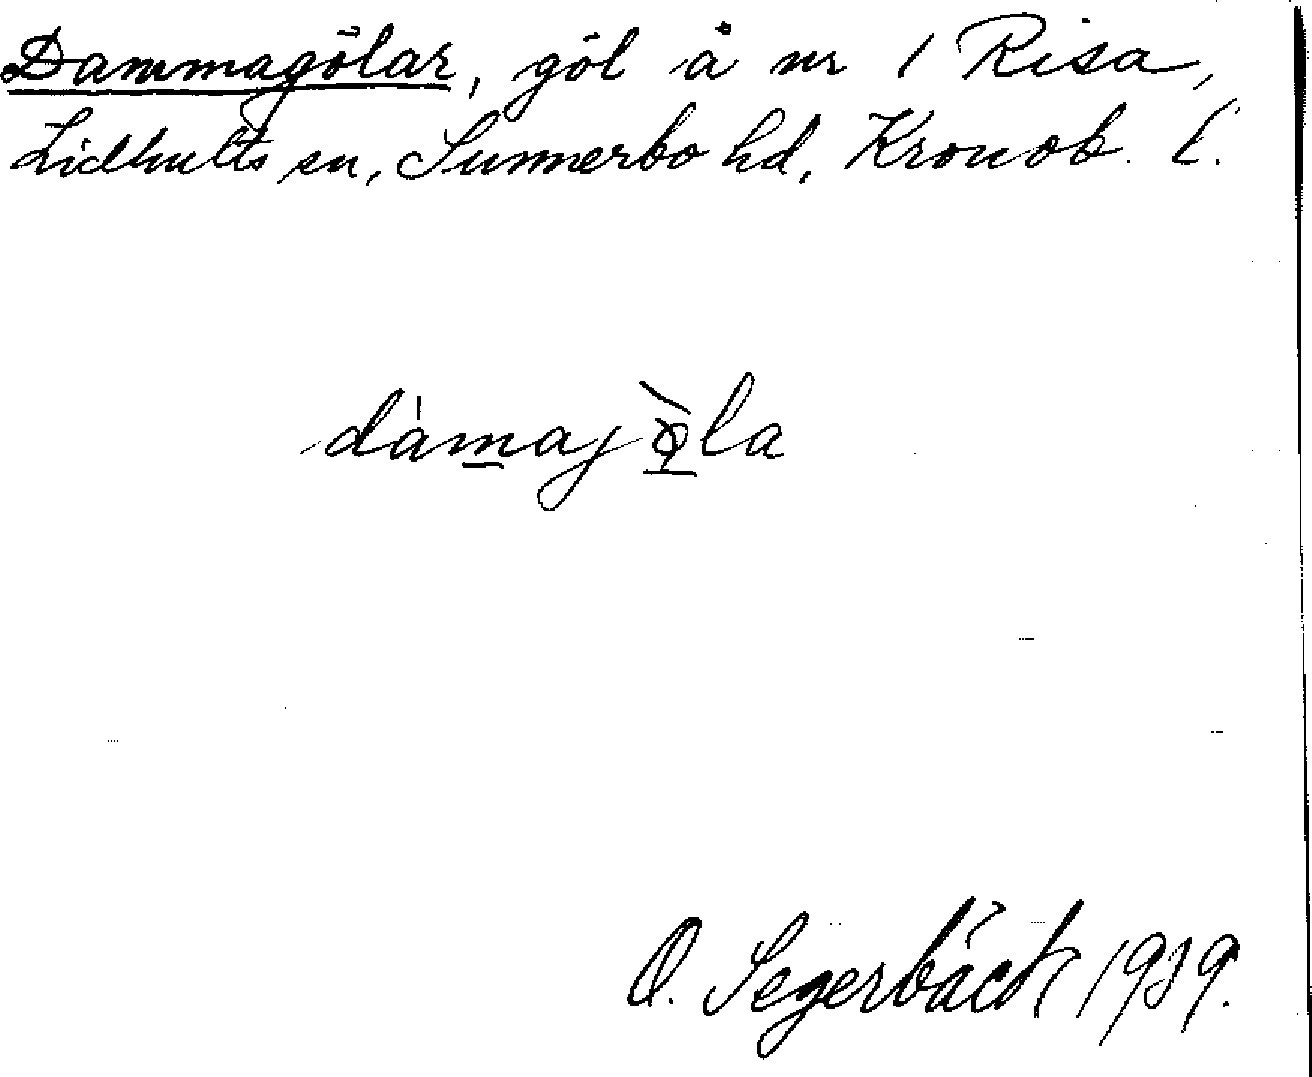 Dammagölar, göl å nr 1 Risa,
Lidhults sn, Sunnerbo hd, Kronob. l.
dàmajò̱la
O. Segerbäck 1939.